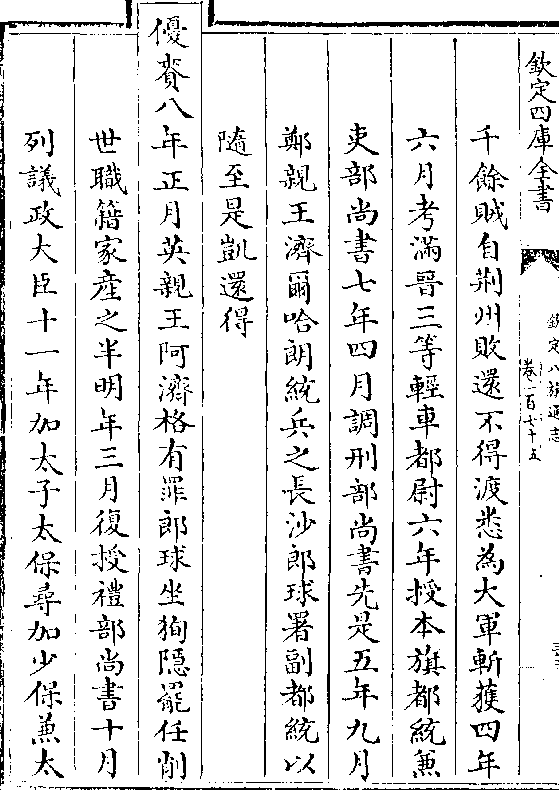 欽定四庫全書
欽定八旗通志
卷一百七十五
千餘賊自荆州敗還不得渡悉為大軍斬獲四年
六月考滿晉三等輕車都尉六年授本旗都統兼
吏部尚書七年四月調刑部尚書先是五年九月
鄭親王濟爾哈朗統兵之長沙郎球署副都統以
隨至是凱還得
優賚八年正月英親王阿濟格有罪郎球坐狥隱罷任削
世職籍家産之半明年三月復授禮部尚書十月
列議政大臣十一年加太子太保尋加少保兼太